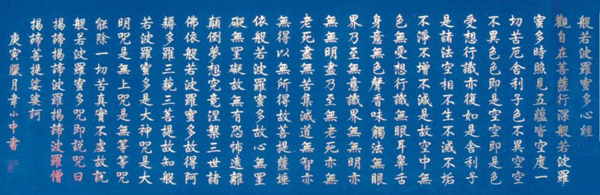 般若波羅蜜多心經
觀自在菩薩行深般若波羅
蜜多時照見五蘊皆空度一
切苦厄舍利子色不異空空
不異色色即是空空即是色
受想行識亦復如是舍利子
是諸法空相不生不滅不垢
不淨不增不減是故空中無
色無受想行識無眼耳鼻舌
身意無色聲香味觸法無眼
界乃至無意識界無無明亦
無無明盡乃至無老死亦無
老死盡無苦集滅道無智亦
無得以無所得故菩提薩埵
依般若波羅蜜多故心無罣
礙無罣礙故無有恐怖遠離
顛倒夢想究竟涅槃三世諸
佛依般若波羅蜜多故得阿
耨多羅三藐三菩提故知般
若波羅蜜多是大神呪是大
明呪是無上呪是無等等呪
能除一切苦真實不虛故說
般若波羅蜜多呪即說呪曰
揭諦揭諦波羅揭諦波羅僧
揭諦菩提娑婆訶
庚寅臘月韋小中書